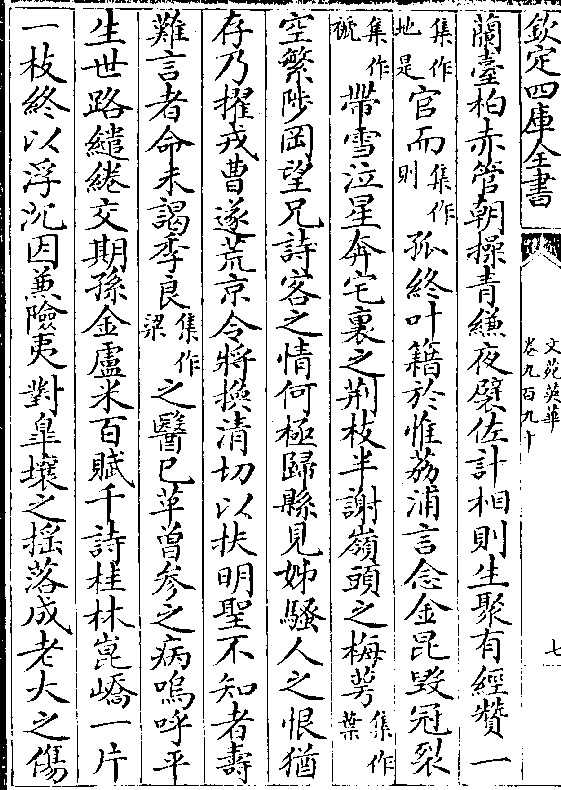 欽定四庫全書
文苑英華
卷九百九十
七
蘭臺柏赤管朝操青縑夜襞佐計相則生聚有經贊一
集作地是官而集作則孤終叶籍於惟荔浦言念金昆毀冠裂
集作褫帶雪泣星奔宅裏之荆枝半謝嶺頭之梅萼集作葉
空繁陟岡望兄詩客之情何極歸縣見姊騷人之恨猶
存乃擢戎曹遂荒京令將換清切以扶明聖不知者壽
難言者命未謁季良集作梁之醫已革曾參之病嗚呼平
生世路繾綣交期孫金盧米百賦千詩桂林崑嶠一片
一枝終以浮沉因兼險夷對皐壤之揺落成老大之傷